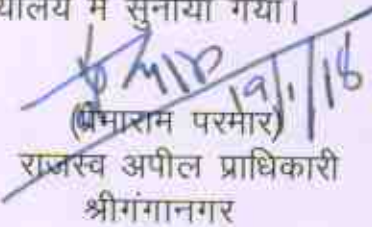 यालय में सुनाया गया।
19/1/18
(प्रेमाराम परमार)
राजस्व अपील प्राधिकारी
श्रीगंगानगर